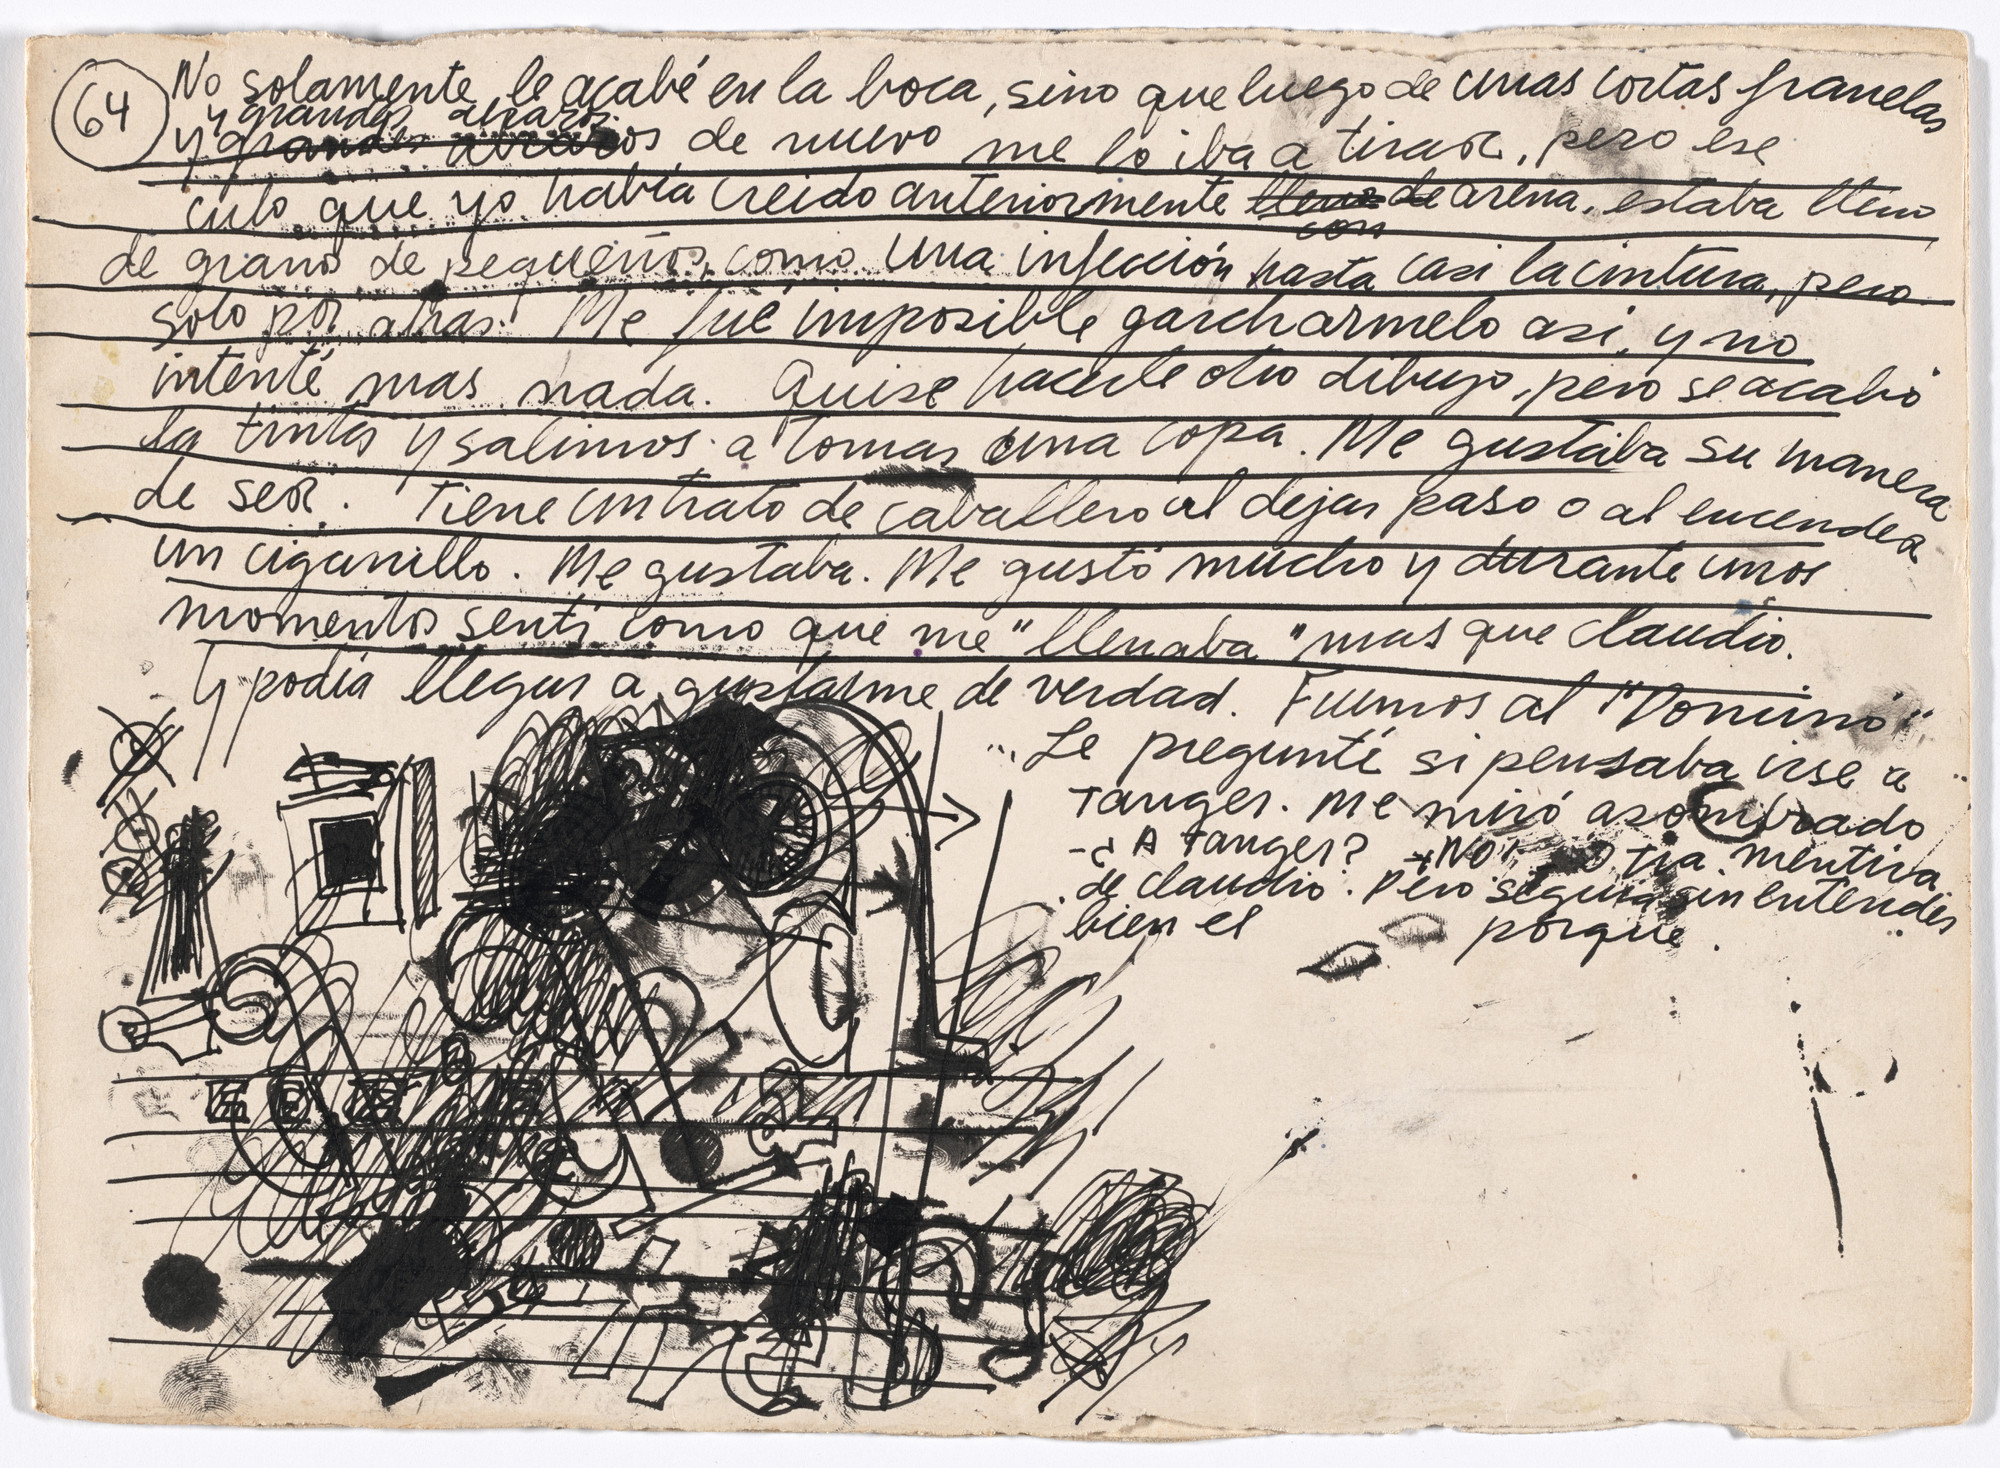 64
No solamente le acabé en la boca, sino que luego de unas cortas franelas
y grandes abrazos
y grandes abrazos de nuevo me lo iba a tirar, pero ese
culo que yo había creido anteriormente lleno de arena, estaba lleno
con
de granos de pequeños, como una infección hasta casi la cintura, pero
solo por atras. Me fué imposible garcharmelo asi, y no
intenté mas nada. Quise hacerle otro dibujo, pero se acabó
la tinta y salimos a tomar una copa. Me gustaba su manera
de ser. Tiene un trato de caballero al dejar paso o al encender
un cigarrillo. Me gustaba. Me gustó mucho y durante unos
momentos senti como que me "llenaba" mas que Claudio.
Y podía llegar a gustarme de verdad. Fuimos al "Domino"
Le pregunté si pensaba irse a
Tanger. Me miró asombrado
-¿A Tanger? -No! Otra mentira
de Claudio. Pero seguia sin entender
bien el porque.